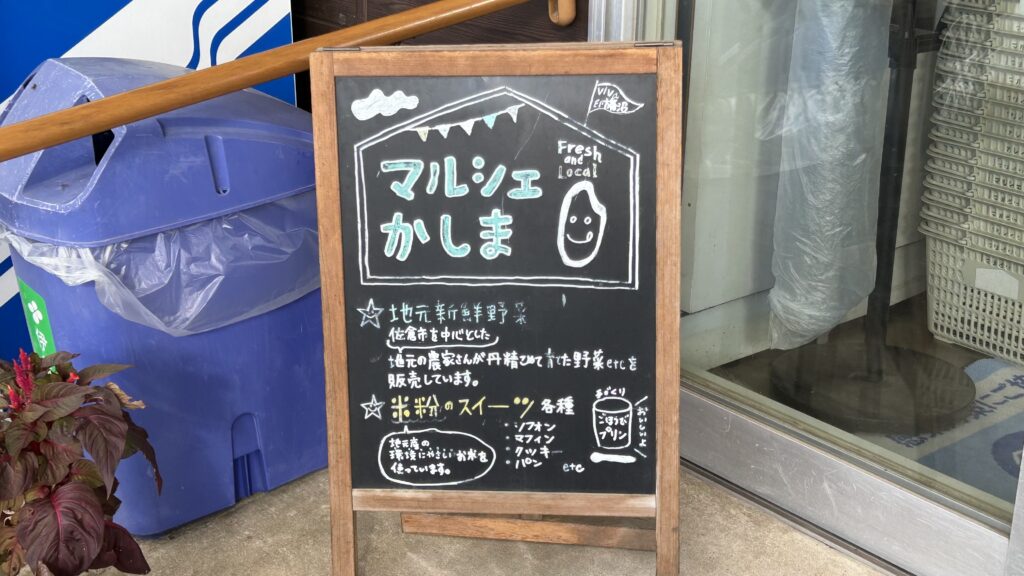 VIVA
印旛沼
Fresh
and
Local
マルシェ
かしま
☆地元新鮮野菜
佐倉市を中心とした
地元の農家さんが丹精こめて育てた野菜etcを
販売しています。
☆米粉のスイーツ 各種
・シフォン
・マフィン
・クッキー
・パン etc
地元産の
環境にやさしいお米を
使っています。
まざくり
ごほうび
プリン
おいしいよ